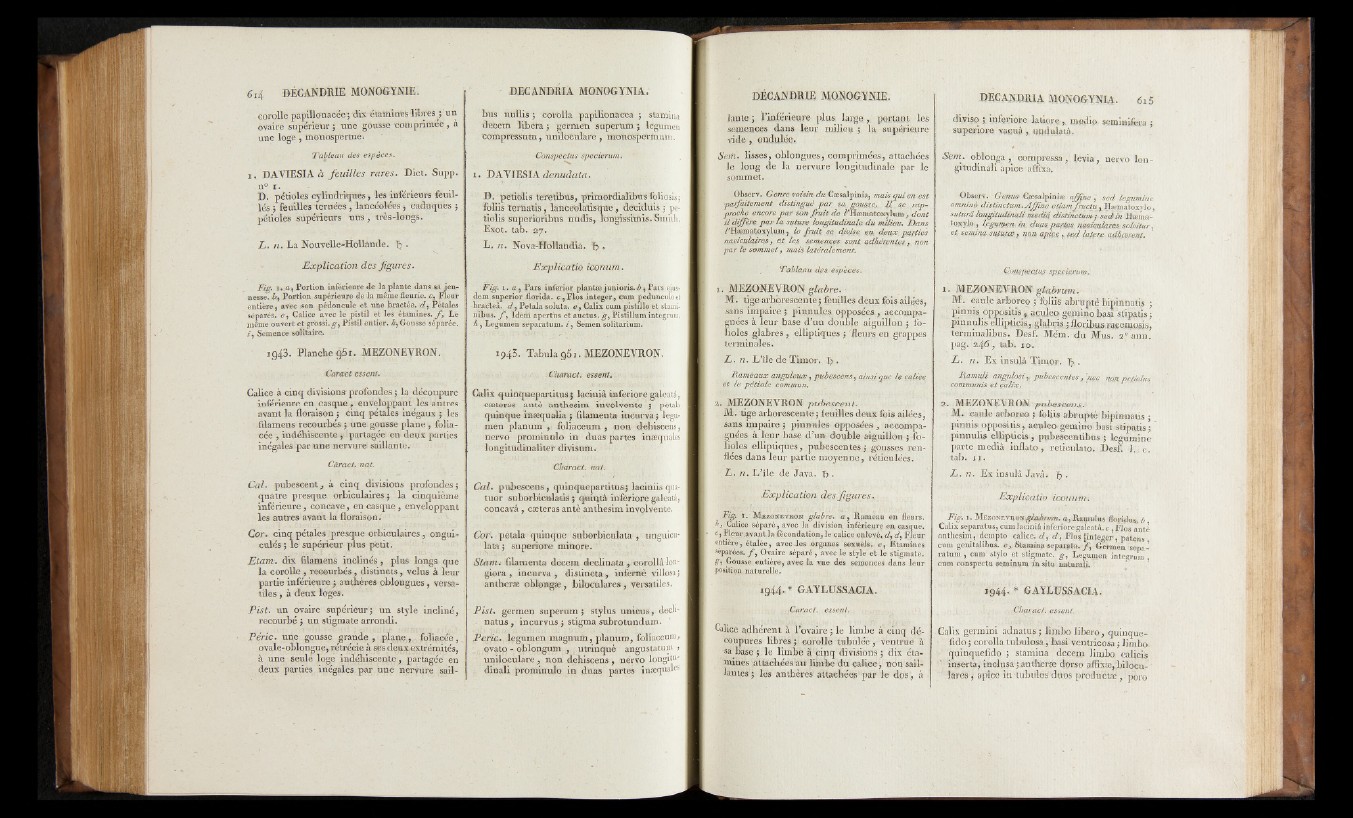 614 DÉCANDRIE MONOGYNIE.
corolle papilionacée; dix étamines libres ; un
ovaire supérieur ; une gousse comprimée, à
une loge , monosperme.
Tableau des espèces.
1. DAVIESIA à feuilles rares. Dict. Supp.
n° 1.
D. pétioles cylindriques , les inférieurs feuil-
lés ; feuilles ternées , lancéolées , caduques ;
pétioles supérieurs nus , très-longs.
L. n. La Nouvelle-Hollande. ♄ .
Explication des figures.
Fig. 1. a, Portion inférieure de la plante dans sa jeu-
nesse. b, Portion supérieure de la même fleurie. c, Fleur
entière, avec son pédoncule et une bractée. d, Pétales
séparés. e, Calice avec le pistil et les étamines. f, Le
même ouvert et grossi. g, Pistil entier. h, Gousse séparée.
i, Semence solitaire.
1943. Planche 951. MEZONEVRON.
Caract essent.
Calice à cinq divisions profondes; la découpure
inférieure en casque, enveloppant les autres
avant la floraison ; cinq pétales inégaux ; les
filamens recourbés ; une gousse plane , folia-
cée , indéhiscente , partagée en deux parties
inégales par une nervure saillante.
Caract. nat.
Cal. pubescent, à cinq divisions profondes;
quatre presque orbiculaires; la cinquième
inférieure , concave, en casque , enveloppant
les autres avant la floraison.
Cor. cinq pétales presque orbiculaires, ongui-
culés ; le supérieur plus petit.
Etam. dix filamens inclinés, plus longs que
la corolle , recourbés , distincts , velus à leur
partie inférieure ; anthères oblongues , versa-
tiles , à deux loges.
Pist. un ovaire supérieur; un style incliné,
recourbé ; un stigmate arrondi.
Péric. une gousse grande , plane, foliacée,
ovale-oblongue, rétrécie à ses deux extrémités,
à une seule loge indéhiscente, partagée en
deux parties inégales par une nervure sail-
DECANDRIA MONOGYNIA.
bus nullis ; corolla papilionacea ; stamina
decem libera ; germen superum ; legumen
compressum, uniloculare , monospermum.
Conspectus specierum.
1. DAVIESIA denudata.
D. petiolis teretibus, primordialibus foliosis;
foliis ternatis, lanceolatisque , deciduis ; pe-
tiolis superioribus nudis, longissimis. Smith.
Exot. tab. 27.
L. n. Nova-Hollandia. ♄ .
Explicatio iconum.
Fig. 1. a, Pars inferior plantæ junioris. b, Pars
dem superior florida. c, Flos integer, cum pedunculo et
bracteâ. d, Petala soluta. e, Calix cum pistillo et stami-
nibus. f, Idem apertus et auctus. g, Pistillum integrum.
h, Legumen separatum. i, Semen solitarium.
1943. Tabula 951. MEZONEVRON.
Charact. essent.
Calix quinquepartitus; laciniâ inferiore galeatâ,
cæteras antè anthesim involvente ; petala
quinque inæqualia ; filamenta incurva ; legu-
men planum , foliaceum , non dehiscens,
nervo prominulo in duas partes inæquales
longitudinaliter divisum.
Charact. nat.
Cal. pubescens, quinquepartitus; laciniis qua-
tuor suborbiculatis ; quintâ inferiore galeatâ,
concavâ , cæteras antè anthesim involvente.
Cor. petala quinque suborbiculata , unguicu-
lata ; superiore minore.
Stam. filamenta decem declinata , corollâ lon-
giora , incurva , distincta , infernè villosa;
antheræ oblongæ , biloculares , versatiles.
Pist. germen superum ; stylus unicus, decli-
natus , incurvus ; stigma subrotundum.
Peric. legumen magnum, planum, foliaceum,
ovato - oblongum , utrinquè angustatum ,
uniloculare , non dehiscens , nervo longitu-
dinali prominulo in duas partes inæquales
DÉCANDRIE MONOGYNIE.
lante ; l'inférieure plus large , portant les
semences dans leur milieu ; la supérieure
vide , ondulée.
Sem. lisses, oblongues, comprimées, attachées
le long de la nervure longitudinale par le
sommet.
Observ. Genre voisin du Cæsalpinia, mais qui en est
parfaitement distingué par sa gousse. Il se rap-
proche encore par son fruit de l'Hæmatoxylum, dont
il diffère par la suture longitudinale du milieu. Dans
l'Hæmatoxylum, le fruit se divise en deux parties
naviculaires, et les semences sont adhérentes, non
par le sommet, mais latéralement.
Tableau des espèces.
1. MEZONEVRON glabre.
M. tige arborescente ; feuilles deux fois ailées,
sans impaire ; pinnules opposées , accompa-
gnées à leur base d'un double aiguillon ; fo-
lioles glabres , elliptiques ; fleurs en grappes
terminales.
L. n. L'île de Timor. ♄ .
Rameaux anguleux, pubescens, ainsi que le calice
et le pétiole commun.
2. MEZONEVRON pubescent.
M. tige arborescente ; feuilles deux fois ailées,
sans impaire ; pinnules opposées , accompa-
gnées à leur base d'un double aiguillon ; fo-
lioles elliptiques, pubescentes ; gousses ren-
flées dans leur partie moyenne, réticulées.
L. n. L'île de Java. ♄ .
Explication des figures.
Fig. 1. MEZONEVRON glabre. a, Rameau en fleurs.
b, Calice séparé, avec la division inférieure en casque.
c, Fleur avant la fécondation, le calice enlevé. d, d, Fleur
entière, étalée, avec les organes sexuels. e, Etamines
séparées. f, Ovaire séparé, avec le style et le stigmate.
g, Gousse entière, avec la vue des semences dans leur
position naturelle.
1944. * GAYLUSSACIA.
Caract. essent.
Calice adhérent à l'ovaire ; le limbe à cinq dé-
coupures libres ; corolle tubulée , ventrue à
sa base ; le limbe à cinq divisions ; dix éta-
mines attachées au limbe du calice, non sail-
lantes ; les anthères attachées par le dos, à
DECANDRIA MONOGYNIA. 615
diviso ; inferiore latiore , medio seminifera ;
superiore vacuâ , undulatâ.
Sem. oblonga , compressa , levia , nervo lon-
gitudinali apice affixa.
Observ. Genus Cæsalpiniæ affine, sed legumine
omninò distinctum. Affine etiam fructu, Hæmatoxylo,
suturâ longitudinali mediâ distinctum; sed in Hæma-
toxylo, legumen in duas partes naviculares solvitur,
et semina suturæ, non apice, sed latere adhærent.
Conspectus specierum.
1. MEZONEVRON glabrum.
M. caule arboreo ; foliis abruptè bipinnatis ;
pinnis oppositis, aculeo gemino basi stipatis ;
pinnulis ellipticis, glabris ; floribus racemosis,
terminalibus. Desf. Mém. du Mus. 2e ann.
pag. 246, tab. 10.
L. n. Ex insulâ Timor. ♄ .
Ramuli angulosi, pubescentes, nec non petiolus
communis et calix.
2. MEZONEVRON pubescens.
M. caule arboreo ; foliis abruptè bipinnatis ;
pinnis oppositis, aculeo gemino basi stipatis ;
pinnulis ellipticis , pubescentibus ; legumine
parte mediâ inflato , reticulato. Desf. l. c.
tab. 11.
L. n. Ex insulâ Javâ. ♄ .
Explicatio iconum.
Fig. 1. MEZONEVRON glabrum. a, Ramulus floridus. b,
Calix separatus, cum laciniâ inferiore galeatâ. c, Flos antè
anthesim, dempto calice. d, d, Flos integer, patens,
cum genitalibus. e, Stamina separata. f, Germen sepa-
ratum, cum stylo et stigmate. g, Legumen integrum,
cum conspectu seminum in situ naturali.
1944. * GAYLUSSACIA.
Charact. essent.
Calix germini adnatus ; limbo libero, quinque-
fido ; corolla tubulosa , basi ventricosa ; limbo
quinquefido ; stamina decem limbo calicis
inserta, inclusa ; antheræ dorso affixæ, bilocu-
lares , apice in tubulos duos productæ , poro